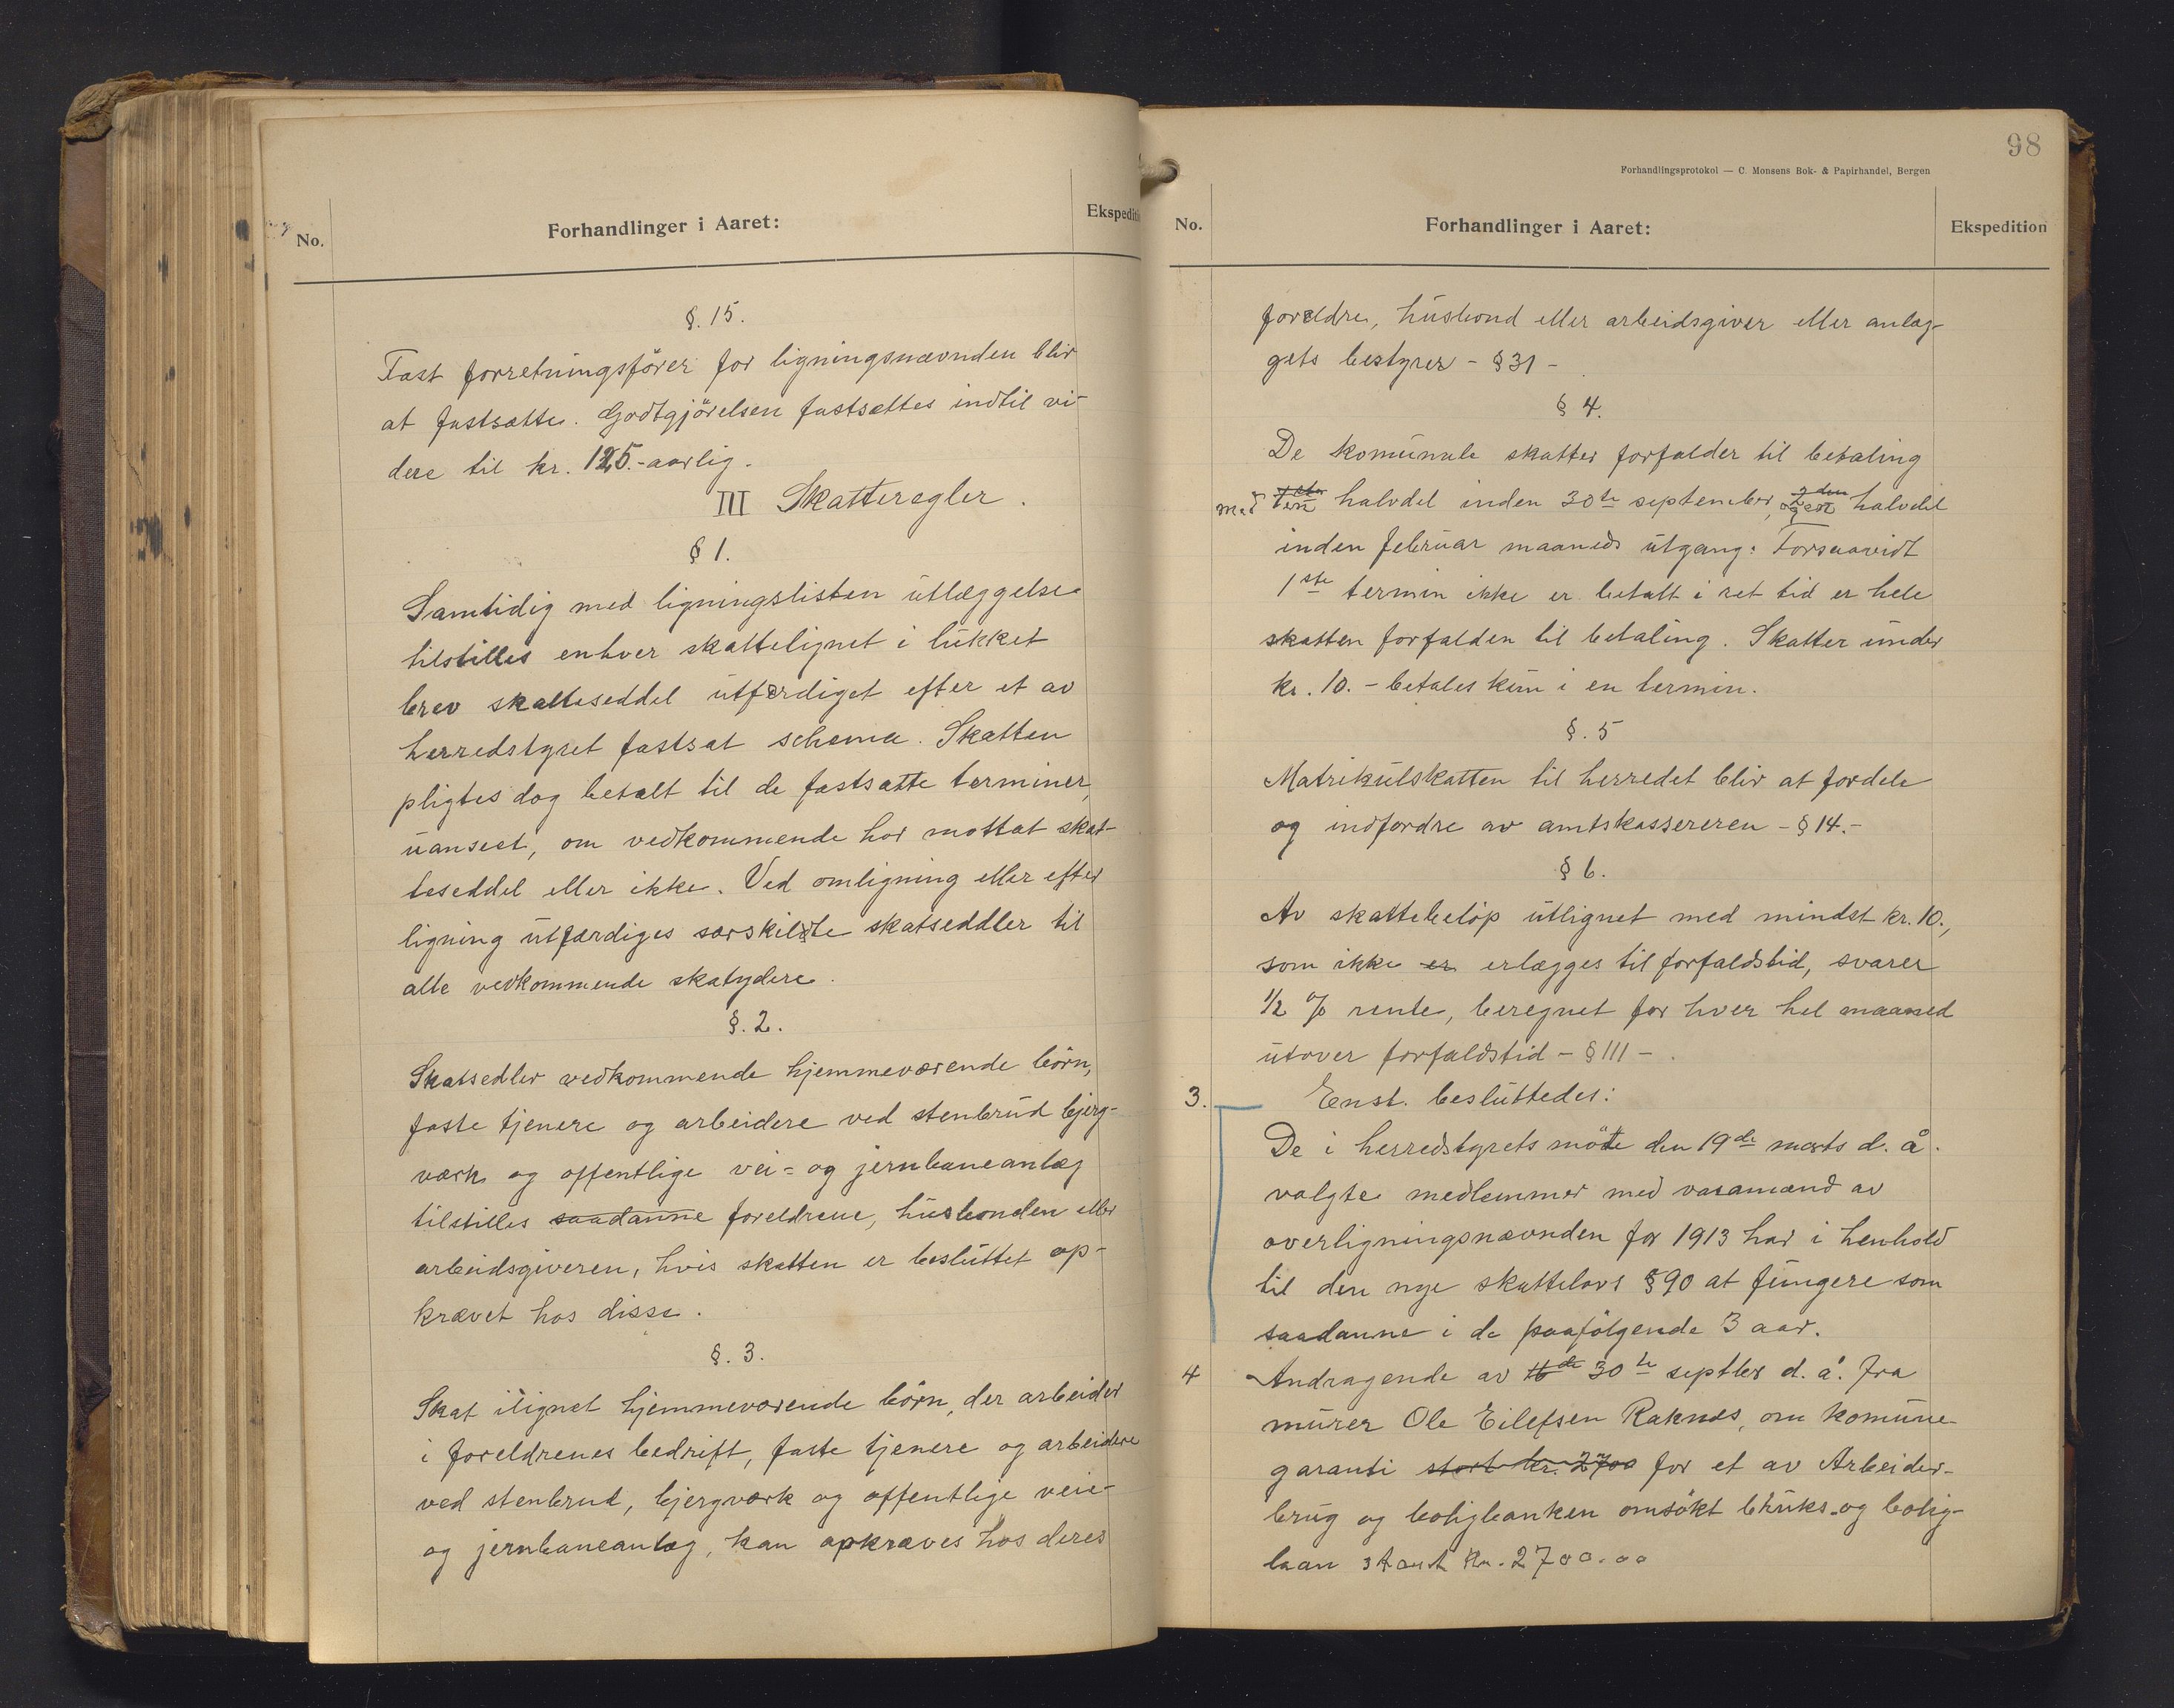 No.
Forhandlinger i Aaret:
Ekspediti
§. 15.
Fast forretningsförer for ligningsnævnden blir
at fastsætte. Godtgjörelsen fastsættes indtil vi-
dere til kr. 125.- aarlig.
III Skatteregler.
§ 1.
Samtidig med ligningslisten utlæggelse
tilstilles enhver skattelignet i lukket
brev skatteseddel utfærdiget efter et av
herredstyret fastsat schema. Skatten
pligtes dog betalt til de fastsatte terminer,
uanseet, om vedkommende har mottat skat-
teseddel eller ikke. Ved omligning eller efter
ligning utfærdiges særskildte skatseddler til
alle vedkommende skatydere.
§. 2.
Skatsedler vedkommende hjemmeværende börn,
faste tjenere og arbeidere ved stenbrud bjerg-
værk og offentlige vei= og jernbaneanlæg
tilstilles saadanne foreldrene, husbonden eller
arbeidsgiveren, hvis skatten er besluttet op-
krævet hos disse.
§. 3.
Skat ilignet hjemmeværende börn, der arbeider
i foreldrenes bedrift, faste tjenere og arbeidere
ved stenbrud, bjergværk og offentlige veie-
og jernbaneanlæg, kan opkræves hos deres
98
Forhandlingsprotokol — C. Monsens Bok- & Papirhandel, Bergen
No.
Forhandlinger i Aaret:
Ekspedition
foreldre, husbond eller arbeidsgiver eller anlæg-
gets bestyrer - § 31 -
§ 4.
De komunale skatter forfalder til betaling
med halvdel inden 30te september, 2den halvdel
inden februar maaneds utgang. Forsaavidt
1ste termin ikke er betalt i ret tid er hele
skatten forfalden til betaling. Skatter under
kr. 10. - betales kun i en termin.
§. 5
Matrikulskatten til herredet blir at fordele
og indfordre av amtskassereren - § 14.-
§ 6.
Av skattebelöp utlignet med mindst kr. 10.,
som ikke er erlægges til forfaldstid, svarer
1/2 % rente, beregnet for hver hel maaned
utover forfaldstid - § 111 - .
3. Enst. besluttedes:
De i herredstyrets möte den 19de marts d. å.
valgte medlemmer med varamænd av
overligningsnævnden for 1913 har i henhold
til den nye skattelovs § 90 at fungere som
saadanne i de paafölgende 3 aar.
4 Andragende av 16de 30te septbr d. å. fra
murer Ole Eilefsen Raknes, om komune-
garanti stort kr. 2700 for et av Arbeider-
brug og boligbanken omsökt bruks- og bolig-
laan stort kr. 2700.00